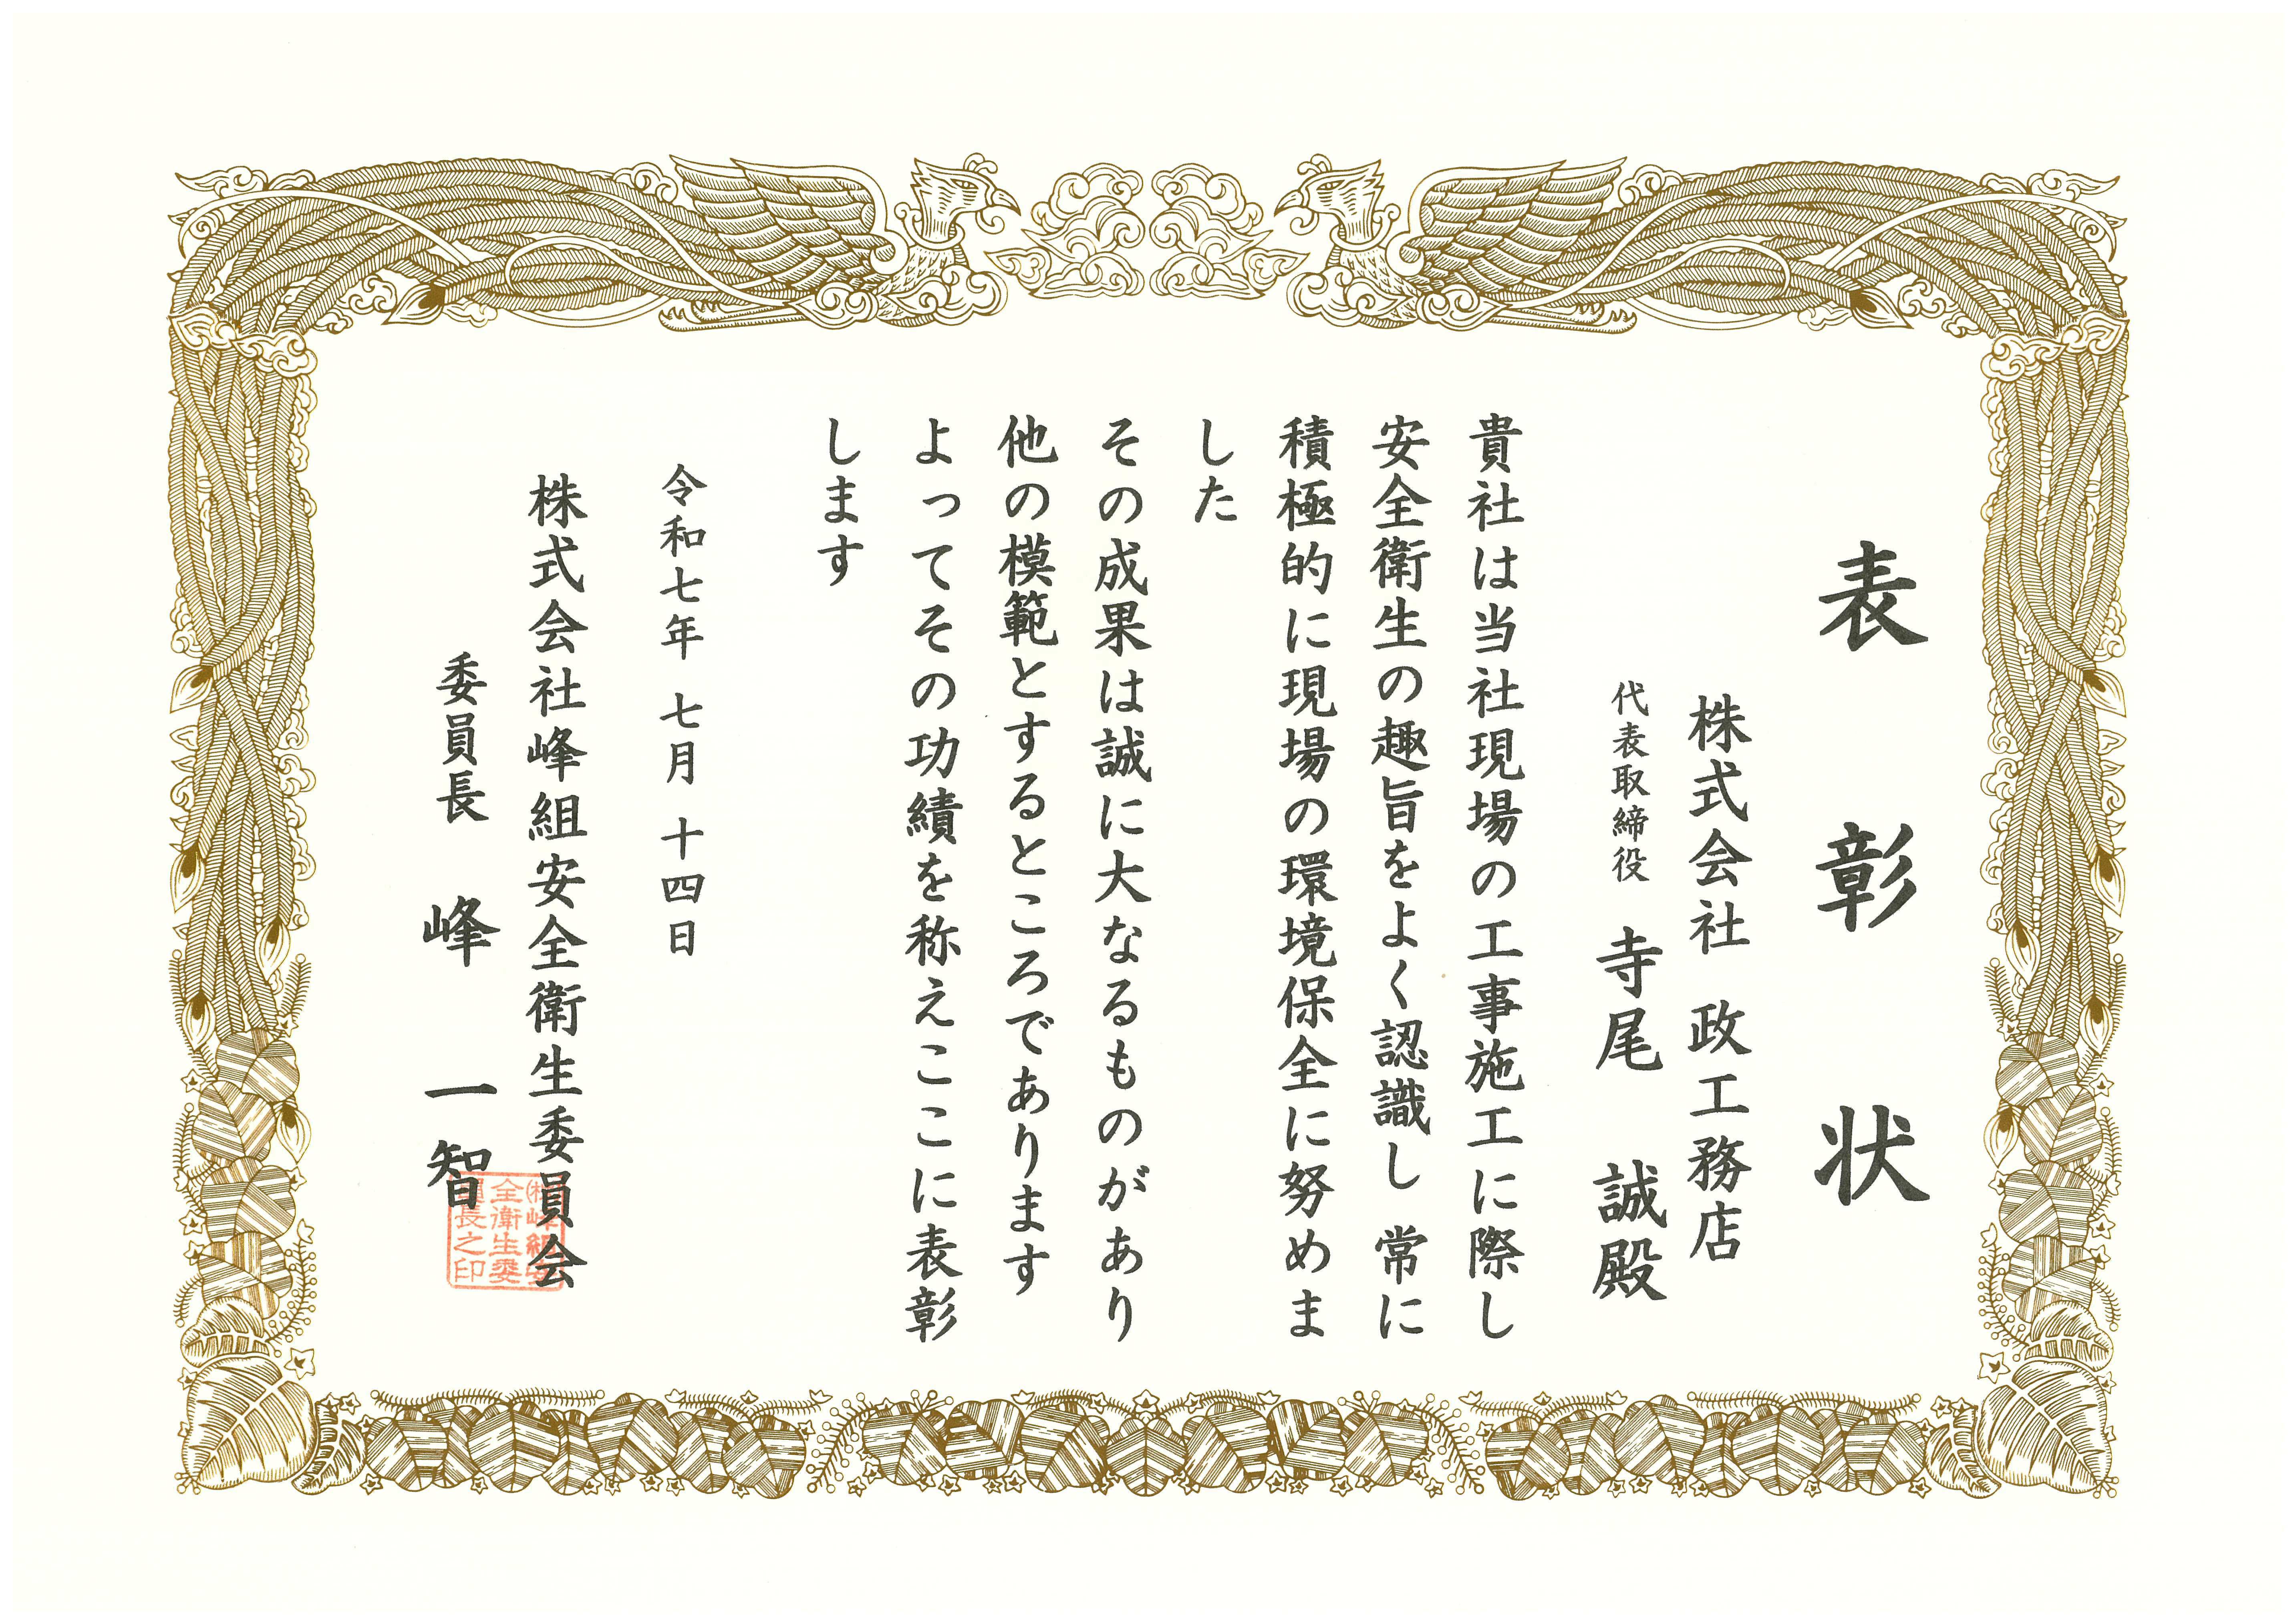 表彰状
株式会社 政工務店
代表取締役 寺尾 誠殿
貴社は当社現場の工事施工に際し
安全衛生の趣旨をよく認識し 常に
積極的に現場の環境保全に努めま
した
その成果は誠に大なるものがあり
他の模範とするところであります
よってその功績を称えここに表彰
します
令和七年 七月 十四日
株式会社峰組安全衛生委員会
委員長 峰 一智
㈱峰組安
全衛生委
員長之印